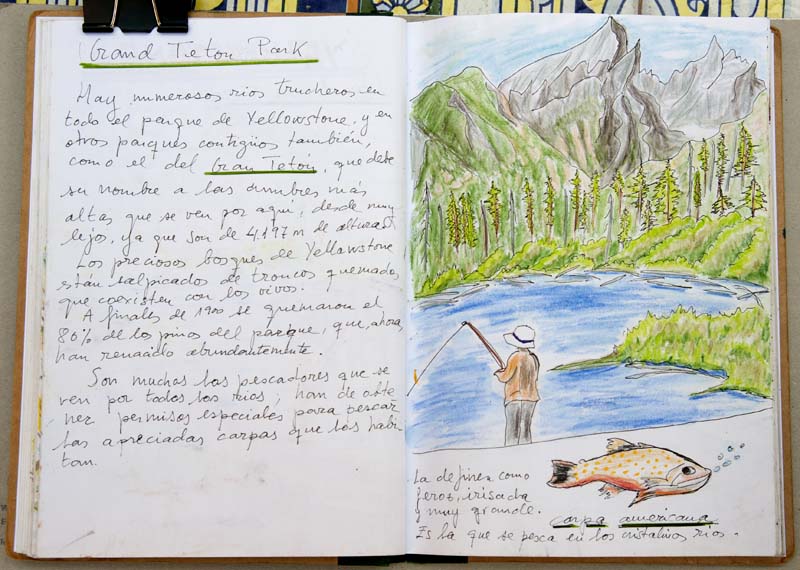 Grand Teton Park
Hay numerosos rios trucheros en
todo el parque de Yellowstone, y en
otros parques contigüos también,
como el del Gran Tetón, que debe
su nombre a las cumbres más
altas que se ven por aquí, desde muy
lejos, ya que son de 4,197 m de altura.
Los preciosos bosques de Yellowstone
están salpicados de troncos quemados,
que coexisten con los vivos.
A finales de 1900 se quemaron el
80% de los pinos del parque, que, ahora,
han renacido abundantemente.
Son muchos los pescadores que se
ven por todos los rios, han de obte
ner permisos especiales para pescar
las apreciadas carpas que los habi
tan.
La definen como
feroz, irisada
y muy grande.
carpa americana
Es la que se pesca en los cristalinos rios.